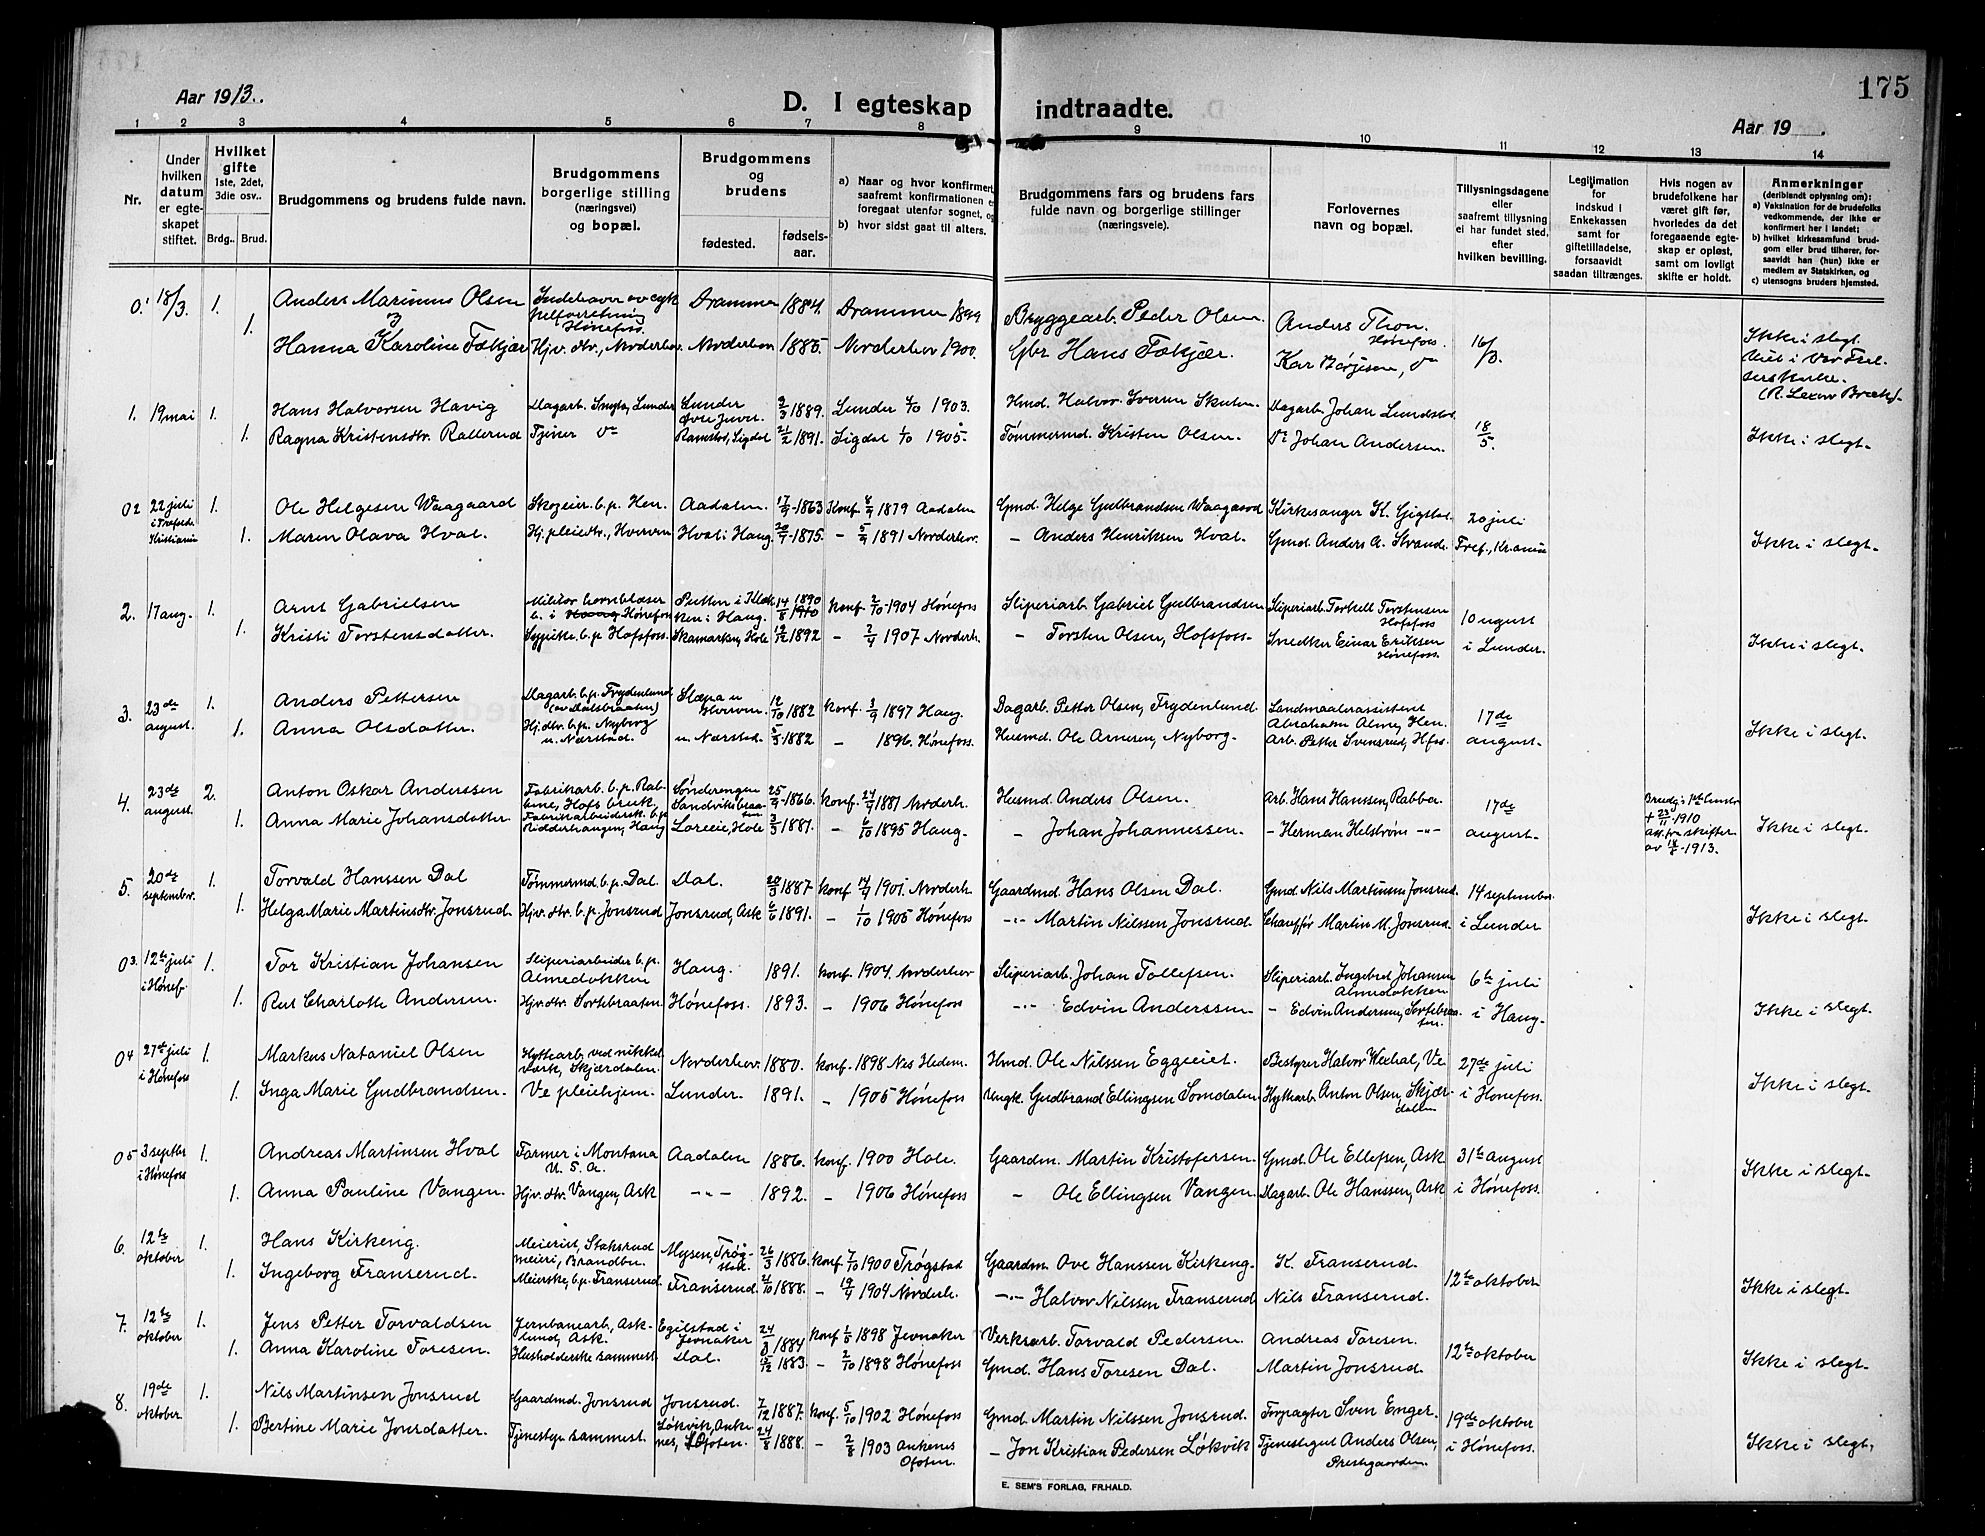 175
Aar 1913.
D. I egteskap indtraadte.
Aar 19
1 2 3 4 5 6 7 8 9 10 11 12 13 14
Nr.
Under hvilken datum er egteskapet stiftet.
Hvilket gifte 1ste, 2det, 3die osv..
Brdg.. Brud.
Brudgommens og brudens fulde navn.
Brudgommens borgerlige stilling (næringsvei) og bopæl.
Brudgommens og brudens
fødested. fødselsaar.
a) Naar og hvor konfirmert, saafremt konfirmationen e foregaat utenfor sognet, og
b) hvor sidst gaat til alters.
Brudgommens fars og brudens fars fulde navn og borgerlige stillinger (næringsveie).
Forlovernes navn og bopæl.
Tillysningsdagene eller saafremt tillysning ei har fundet sted, efter hvilken bevilling.
Legitimation for indskud i Enkekassen samt for giftetilladelse, forsaavidt saadan tiltrænges.
Hvis nogen av brudefolkene har været gift før, hvorledes da det foregaaende egteskap er opløst, samt om lovligt skifte er holdt.
Anmerkninger (deriblandt oplysning om):
a) Vaksination for de brudefolks vedkommende, der ikke er konfirmert her i landet;
b) hvilket kirkesamfund brudgom eller brud tilhører, forsaavidt han (hun) ikke er medlem av Statskirken, og
c) utensogns bruders hjemsted.
0.1 18/3. 1. Anders Marinius Olsen Indehaver av cykkelforretning Hønefoss. Drammen 1884. Drammen 1899 Bryggearb. Peder Olsen. Anders Thon. Hønefoss. 16/3.
1. Hanna Karoline Tækjær Hjv. dtr., Norderhov. Norderhov 1885. Norderhov 1900. Gbr Hans Tækjær. Kar Børjesen, do Ikke i slegt.
1. 19 mai 1. Hans Halvorsen Havig Dagarb. Sogta, Lunder Lunder Øvre Jevn. 1889. Lunder 1903. Hmd. Halvor Iversen Skuten. Dagarb. Johan Lundstad 18/5.
1. Ragna Kristensdtr. Rallerud Tjener do Ramstad, Sigdal 21/2 1891. Sigdal 1/10 1905. Tømmermd. Kristen Olsen. Do Johan Andersen. Ikke i slegt.
02 22 juli i Trefoldh Kristiania 1. Ole Helgesen Waagaard Skogeier b. p. Hen. Aadalen. 17/9-1863 Konf. 1879 Aadalen Gmd. Helge Gulbrandsen Waagaard Kirkesanger K. Gigstad 20 juli
1. Maren Olava Hval. Hj. pleiedtr., Hverven Hval i Haug 20/9-1875. - 5/9 1891 Norderhov. - Anders Henriksen Hval. Gmd. Anders A. Strande. Tref., Kr.ania Ikke i slegt.
2. 17 aug. 1. Arnt Gabrielsen Militær hornblæser b. i Haug Hønefoss Putten i Klækken i Haug. 14/8 1890 1910 konf. 2/10-1904 Hønefoss Sliperiarb. Gabriel Gulbrandsen Sliperiarb. Torkell Torstensen Hofsfoss 10 august
1. Kristi Torstensdatter. Sypike b. p. Hofsfoss. Skamarken, Hole 19/12 1892 - 2/4 1907 Norderh. - Torsten Olsen, Hofsfoss- Snedker Einar Eriksen Hønefoss. i Lunder. Ikke i slegt.
3. 23de august. 1. Anders Pettersen Dagarb. b. p. Frydenlund (av Dalsbraaten) Slæpa u Hverven. 12/10 1882 konf. 3/9 1897 Haug. Dagarb. Petter Olsen, Frydenlund. Landmaalerassistent Abraham Alme, Hen. 17de
1. Anna Olsdatter. Hj. dtr. b. p. Nyborg u. Nærstad. u. Nærstad. 1882 - 1896. Hønefoss. Husmd. Ole Arnesen, Nyborg. Arb. Petter Svensrud, H.foss. august. Ikke i slegt.
4. 23de august. 2. Anton Oskar Anderssen Fabrikarb. b. p. Rabbene, Hofs bruk, Sønderengen Sandviksbraaten 25/9-1866. konf. 24/9 1881 Norderh. Husmd. Anders Olsen. Arb. Hans Hanssen, Rabba. 17de Brudg.s 1ste hustr + 23/11-1910 att. fra skifter av 14/8-1913.
1. Anna Marie Johansdatter Fabrikarbeiderske b. p Ridderhaugen, Haug Loreeie, Hole 3/3 1881. - 6/10 1895 Haug. - Johan Johannessen. - Herman Helstrøm -"- august. Ikke i slegt.
5. 20de septembr. 1. Torvald Hanssen Dal Tømmermd. b. p. Dal. Dal. 20/3 1887. konf 14/9 1901. Norderh. Gaardmd. Hans Olsen Dal. Gmd Nils Martinsen Jonsrud 14 september
1. Helga Marie Martinsdtr. Jonsrud. Hjv. dtr. b. p. Jonsrud Jonsrud, Ask 6/6 1891. - 1/10 1905 Hønefoss -"- Martin Nilssen Jonsrud. Chauffør Martin M. Jonsrud. i Lunder Ikke i slegt.
03. 12te juli i Hønef. 1. Tor Kristian Johansen Sliperiarbeider b. p. Almedokken Haug. 1891. konf. 1904. Norderhov Sliperiarb. Johan Tollefsen. Sliperiarb. Ingebret Johansen Almedokken 6te juli
1. Rut Charlotte Andersen. Hjv. dtr. Sortebraaten. Hønefoss. 1893. - 1906 Hønefoss -"- Edvin Anderssen. - Edvin Andersen, Sortebraaten. i Haug. Ikke i slegt.
04 27de juli i Hønefoss 1. Markus Nataniel Olsen Hyttearb. ved nikkelverk, Skjærdalen. Norderhov. 1880. konf. 1898 Nes Hedem. Hmd. Ole Nilssen Eggeeiet. Bestyrer Halvor Wexhal, Ve 27de juli
1. Inga Marie Gudbrandsen. Ve pleiehjem. Lunder. 1891. - 1905 Hønefoss Gudbrand Ellingsen Somdalen Hyttearb. Anton Olsen, Skjærdalen i Hønefoss. Ikke i slegt.
05 3 septbr i Hønefoss 1. Andreas Martinsen Hval Farmer i Montana U. S. A. Aadalen 1886. konf. 1900 Hole. Gaardm. Martin Kristofersen. Gmd. Ole Ellefsen, Ask 31te august
1. Anna Pauline Vangen. Hjv. dtr. Vangen, Ask -"- 1892. - 1906 Hønefoss - Ole Ellingsen Vangen. Dagarb. Ole Hanssen, Ask i Hønefoss. Ikke i slegt.
6. 12te oktober 1. Hans Kirkeng. Meierist, Staksrud meieri, Brandbu. Mysen, Trøgstad. 26/3 1886. konf. 7/10 1900 Trøgstad Gaardm. Ove Hanssen Kirkeng. K. Franserud.
1. Ingeborg Franserud. Meierske, b. p. Franserud. Franserud. 21/10 1888. - 19/4 1904 Norderh. -"- Halvor Nilssen Franserud Nils Franserud. 12te oktober Ikke i slegt.
7. 12te oktober 1. Jens Petter Torvaldsen Jernbanearb., Asklund, Ask. Egilstad i Jevnaker 24/8 1884 konf 1/5 1898 Jevnaker Verksarb. Torvald Pedersen. Andreas Toresen.
1. Anna Karoline Toresen. Husholderske sammest. Dal. 1883. - 2/10 1898 Hønefoss Gmd. Hans Toresen Dal. Martin Jonsrud. 12te oktober Ikke i slegt.
8. 19de oktober. 1. Nils Martinsen Jonsrud Gaardmd. Jonsrud Jonsrud. 7/12 1887. konf. 5/10 1902 Hønefoss Gmd. Martin Nilssen Jonsrud. Forpagter Sven Enger. 19de oktober
1. Bertine Marie Jonsdatter. Tjenestep. sammest. Løkvik, Ankenes, Ofoten. 24/8 1888. - 2/8 1903 Ankenes Ofoten. - Jon Kristian Pedersen Løkvik Tjenestegut Anders Olsen, Prestgaarden. i Hønefoss. Ikke i slegt.
E. SEM'S FORLAG, FR.HALD.